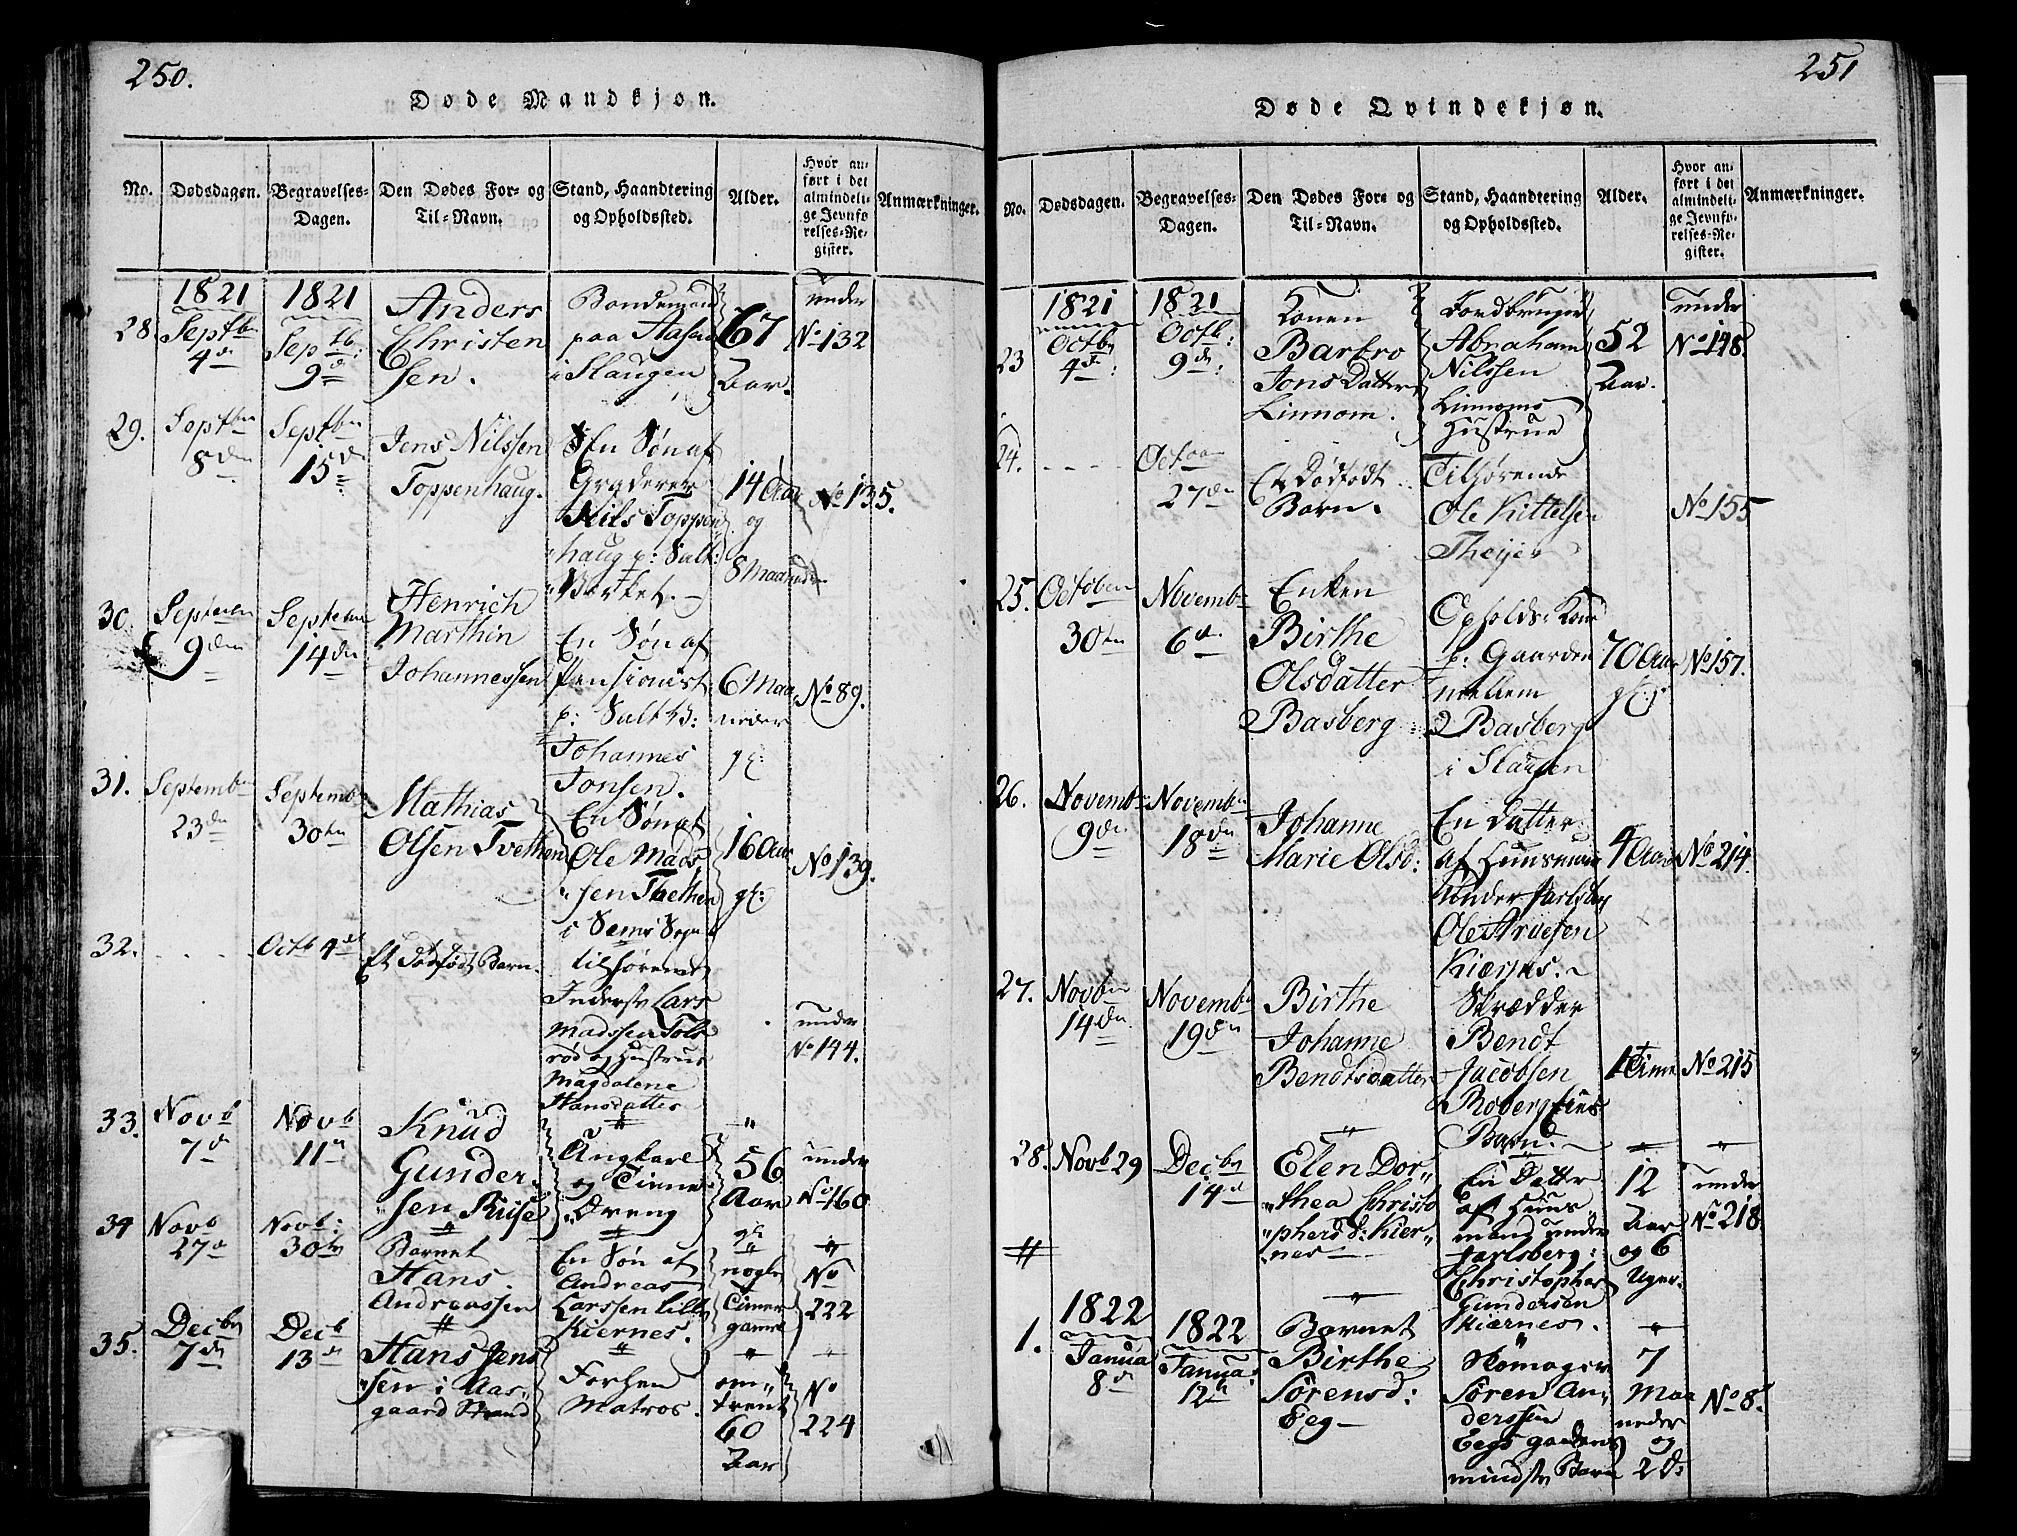 250.
Døde Mandkjøn.
No.
Dødsdagen.
Begravelses-
Dagen.
Den Dødes For- og
Til-Navn.
Stand, Haandtering
og Opholdssted.
Alder.
Hvor an-
ført i det
almindeli-
ge Jevnfø-
relses-Re-
gister.
Anmærkninger.
28
1821
Septbr
4de
1821
Septb:
9de
Anders
Christen
sen.
Bondemand
paa Aasen
i Slaugen
67
Aar.
under
No 132
29.
Septbr
8de
Septbr
15de
Jens Nilssen
Toppenhaug.
En Søn af
Graderer
Nils Toppen
haug p: Salt:
Værket.
14 Aar
og
8 Maaneder
No 135.
30.
Septembr
9de
Septembr
14de
Henrich
Marthin
Johannessen
En Søn af
Pensionist
p: Salt V:
Johannes
Jonsen.
6 Maa
neder
gl:
No 89.
31.
Septembr
23de
Septembr
30te
Mathias
Olsen Tvethen
En Søn af
Ole Mads
sen Tvethen
i Sems Sogn
16 Aar
gl:
No 139.
32.
Octb 4de
Et dødfødt Barn.
tilhørende
Inderste Lars
Madssen Tols
rød og Hustrue
Magdalene
Hansdatter
under
No 144.
33.
Novb
7de
Novb
11te
Knud
Gunder
sen Riise
Ungkarl
og Tienne
Dreng
56
Aar
gl
under
No 160
34
Novb
27de
Novb:
30te
Barnet
Hans
Andreassen
En Søn af
Andreas
Larssen Lille
Kiernes.
nogle
Timer
gamle
No
222
35.
Decbr
7de
Decb
13de
Hans Jens
sen i Aas
gaard Strand
Forhen
Matros.
om
trent
60
Aar
No
224
251
Døde Qvindekjøn.
No.
Dødsdagen.
Begravelses-
Dagen.
Den Dødes For- og
Til-Navn.
Stand, Haandtering
og Opholdssted.
Alder.
Hvor an-
ført i det
almindeli-
ge Jevnfø-
relses-Re-
gister.
Anmærkninger.
23
1821
Octbr
4de:
1821
Octb:
9de:
Konen
Barbro
Jons Datter
Linnom.
Jordbruger
Abraham
Nilssen
Linnoms
Hustrue
52
Aar.
under
No 148.
24.
- - - -
Octobr
27de
Et Dødfødt
Barn.
Tilhørende
Ole Kittelsen
Theyer
No 155
25.
Octobr
30te
Novembr
6te
Enken
Birthe
Olsdatter
Basberg
Opholds Kone
p: Gaarden
mellem
Basberg
i Slaugen
70 Aar
gl:
No 157.
26.
Novembr
9de
Novembr
18de
Johanne
Marie Olsd:
En datter
af Huusmand
under Jarlsberg
Ole Arvesen
Kiærnes.
4 Aar
No 214.
27.
Novbr
14de
Novembr
19de
Birthe
Johanne
Bendtsdatter
Skrædder
Bendt
Jacobsen
Roberg Eies
Barn.
1 Time
No 215
28.
Novb 29
Decbr
14de
Elen Dor
thea Christo
phersd: Kier
nes
En Datter
af Huus
mand under
Jarlsberg:
Christopher
Gundersen
Kiærnes.
12
Aar
og 6
Uger.
under
No 218
#
1.
1822
Janua
8de
1822
Janua:
12te
Barnet
Birthe
Sørensd:
Eeg
Skomager
Søren An
derssen
Eegs gaardens
mindste Barn
7
Maa
neder
og
2 D:
No 8.